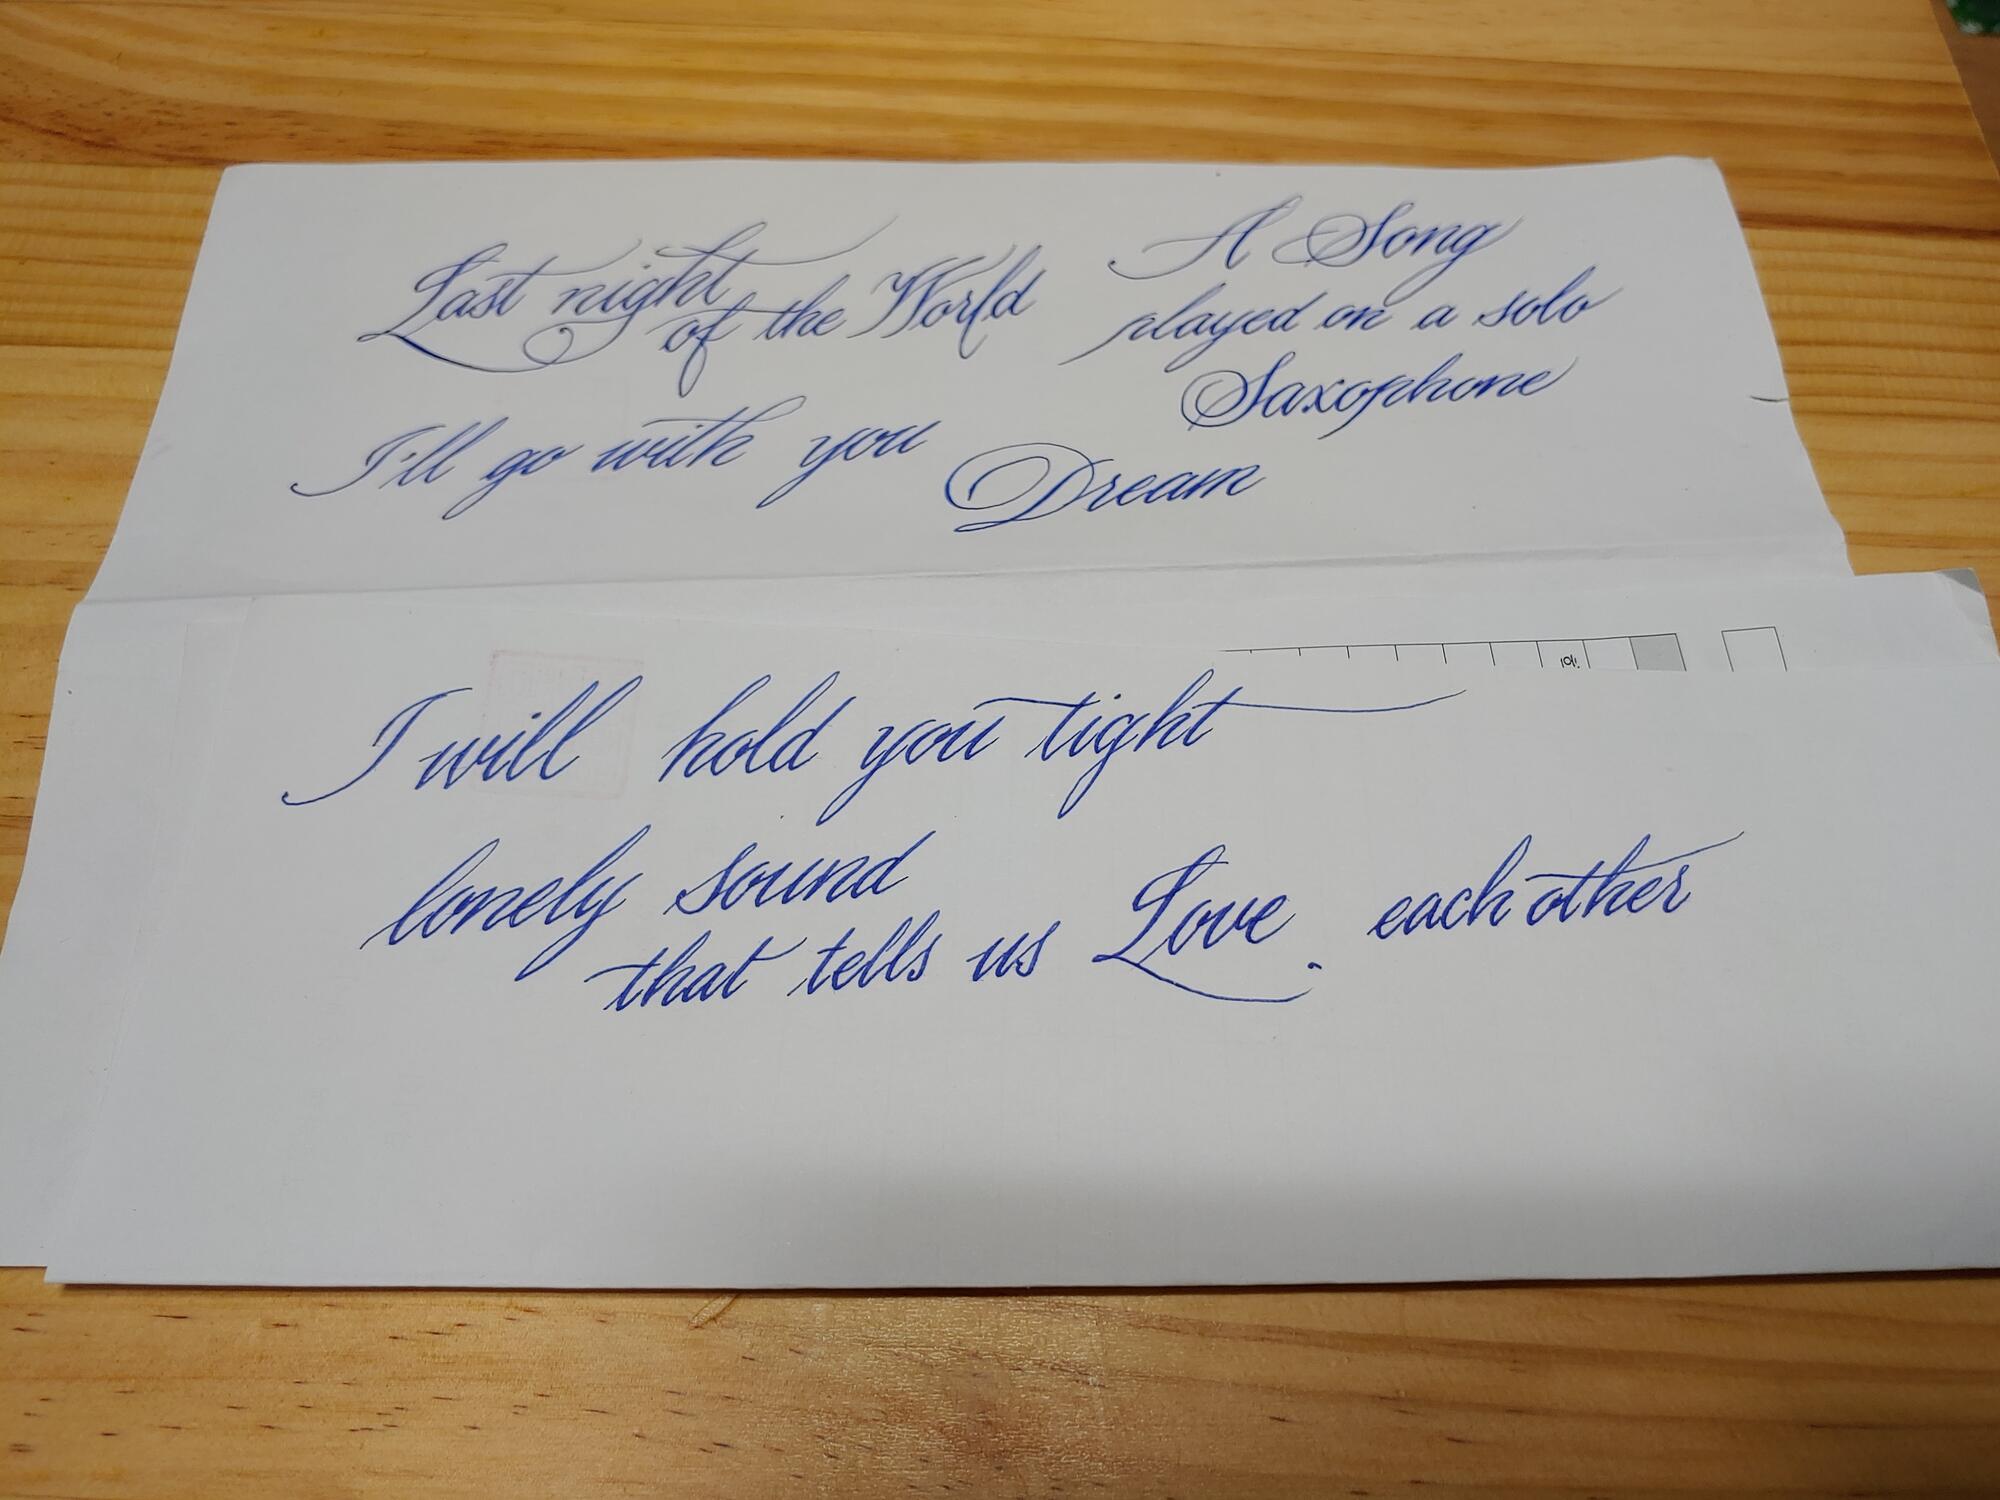 Last night
of the World
A Song
played on a solo
Saxophone
I'll go with you
Dream
I will hold you tight
lonely sound
that tells us Love each other